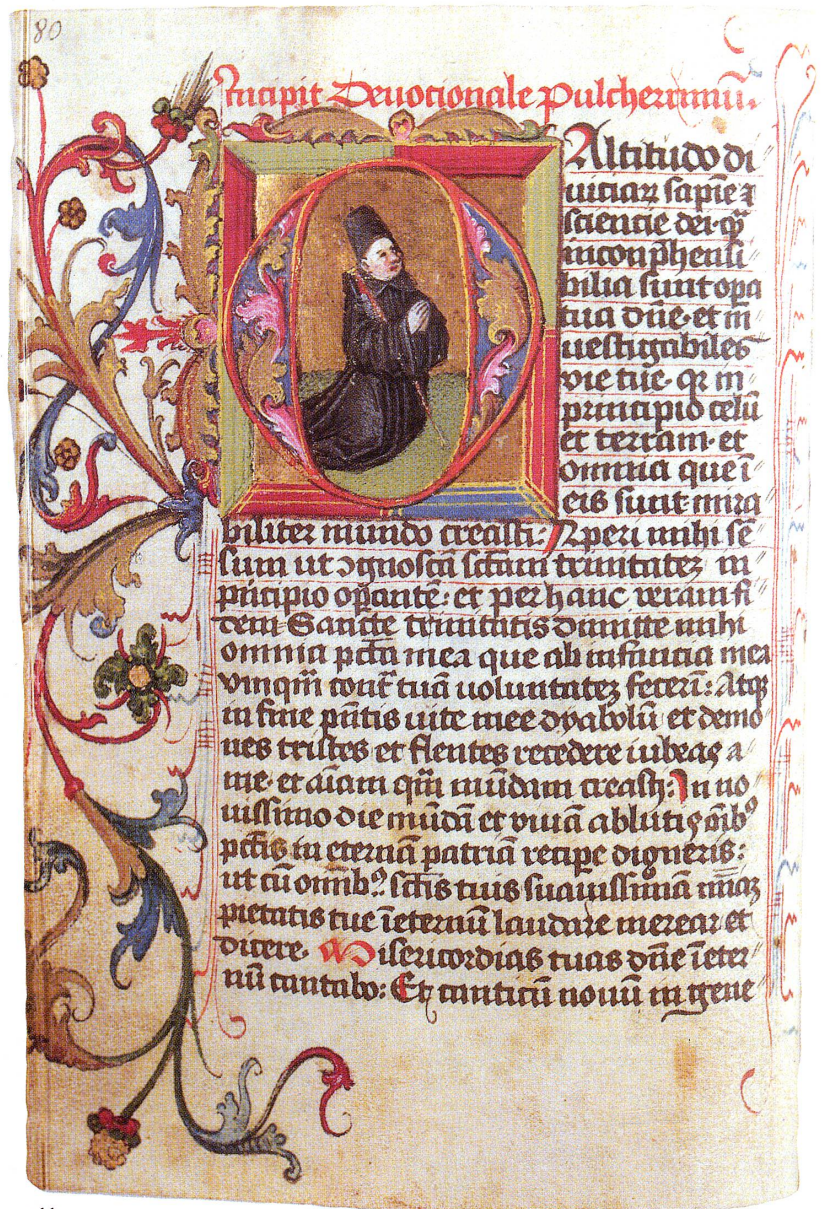 80
Incipit Deuotionale Pulcherrimū.
O Altitudo di
uitiaꝝ sapiē ⁊
scientie dei· qͣꝫ
inconp̄hensi
bilia sunt oꝑa
tua dn̄e· et in
uestigabiles
vie tue· qꝛ in
principio celū
et terram· et
omnia que ī
eis sunt mira
biliter mundo creasti: Aperi mihi sē
sum ut ꝯgnoscā sc̄tam trinitateꝫ in
principio oꝑantē: et per hanc veram fi
dem Sancte trinitatis dimitte mihi
omnia pctā mea que ab infancia mea
vmqm̄ cont͛ tuā uoluntateꝫ fecerī: Atqꝫ
in fine pn̄tis uite mee dyabolū et demo
nes tristes et flentes recedere iubeas a
me· et aīam qm̄ mūdam creasti: In no
uissimo die mūdā et viuā ablutis oībꝰ
pctīs in eternā patriā recipe digneris:
ut cū omībꝰ sctīs tuis suauissimā
pietatis tue īeternū laudare merear et
dicere· Misericordias tuas dn̄e īeter
nū cantabo: Et canticū nouū in gene